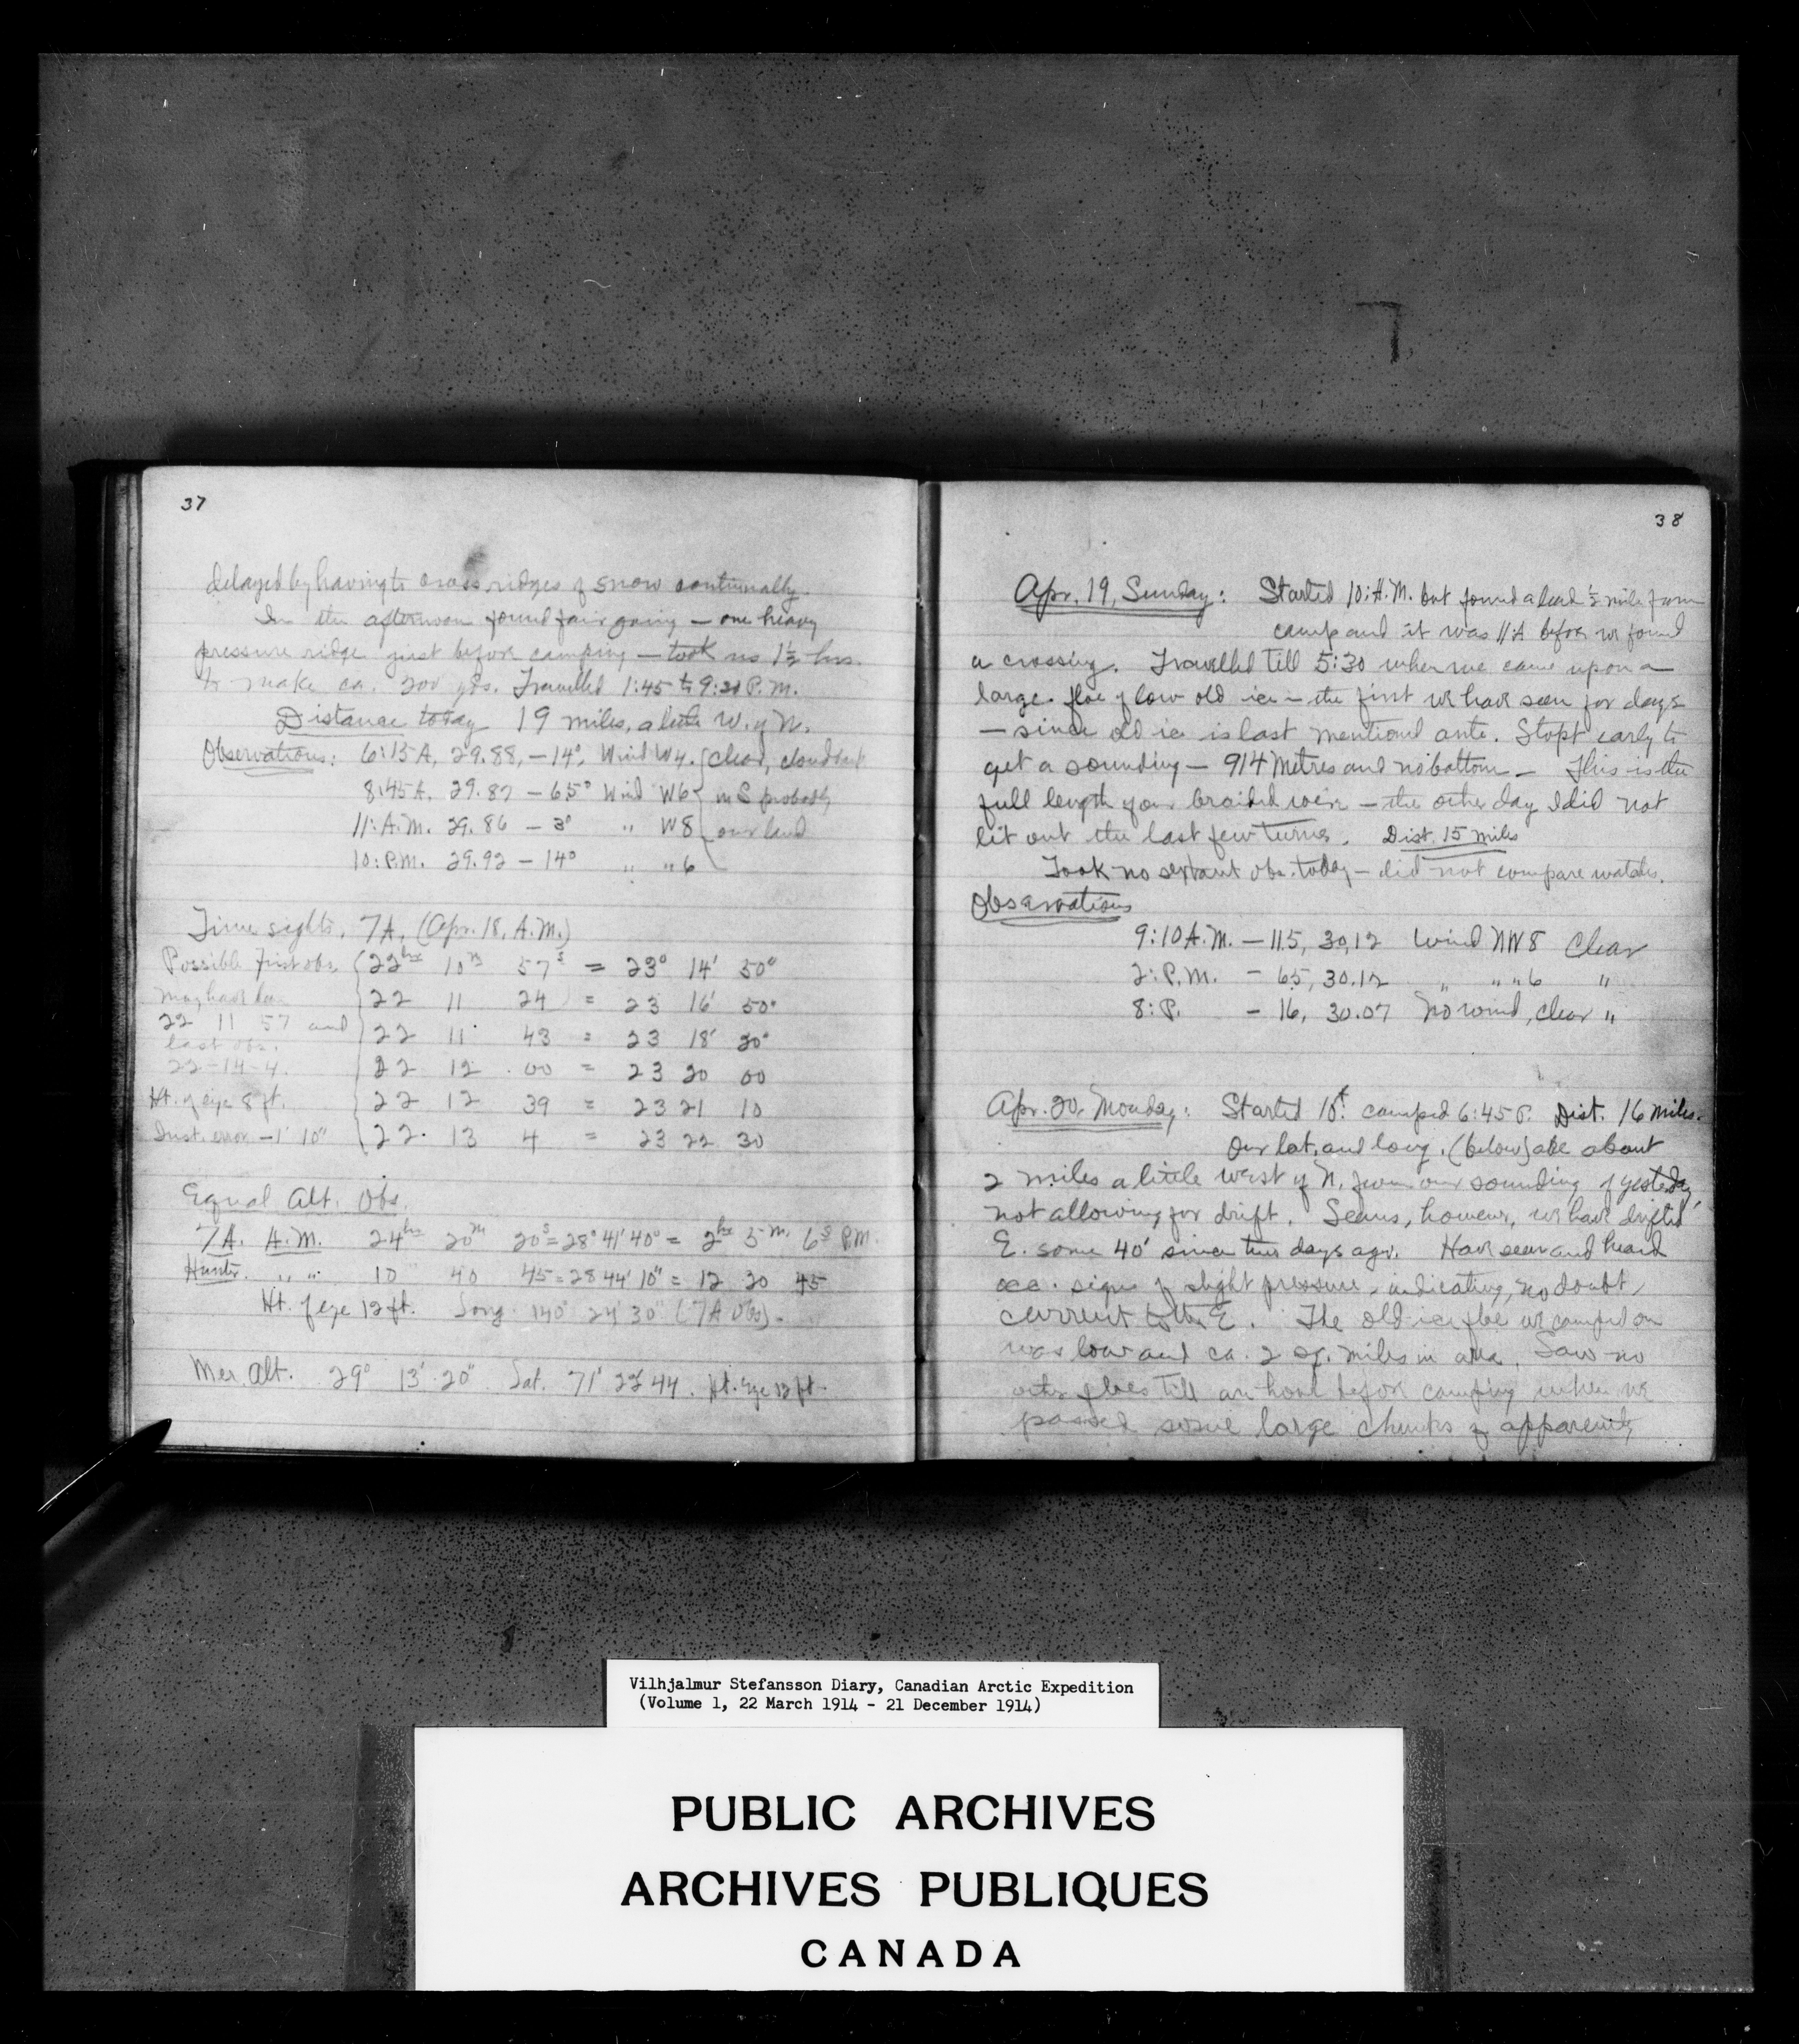 37
delayed by having to cross ridges of snow continually.
In the afternoon found fair going — one heavy
pressure ridge just before camping — took us 1½ hrs.
to make ca. 200 yds. Travelled 1:45 to 9:20 P.M.
Distance today 19 miles, a little W. of N.
Observations: 6:15 A, 29.88, -14°, Wind W4. clear, cloud bank
8:45 A. 29.87 - 6.5° Wind W6 in S probably
11: A.M. 29.86 - 3° " W8 over land
10: P.M. 29.92 - 14° " " 6
Time sights, 7A, (Apr. 18, A.M.)
Possible first obs. 22hrs 10m 57s = 23° 14' 50"
may have been 22 11 24 = 23 16' 50"
22 11 57 and 22 11 43 = 23 18' 20"
last obs. 22-14-4. 22 12 00 = 23 20 00
Ht. of eye 8 ft. 22 12 39 = 23 21 10
Inst. error -1' 10" 22 13 4 = 23 22 30
Equal Alt. Obs.
7A. A.M. 24hrs 20m 20s = 28° 41' 40" = 2hrs 5m 6s P.M.
Hunter. " " 10 40 45 = 28 44' 10" = 12 20 45
Ht. of eye 12 ft. Long. 140° 24' 30" (7A obs).
Mer. Alt. 29° 13' 20" Lat. 71° 22' 44. Ht. Eye 12 ft.
38
Apr. 19, Sunday: Started 10: A.M. but found a lead ½ mile from
camp and it was 11:A before we found
a crossing. Travelled till 5:30 when we came upon a
large floe of low old ice — the first we have seen for days
— since old ice is last mentioned ante. Stopt early to
get a sounding — 914 Metres and no bottom — This is the
full length of our braided wire — the other day I did not
let out the last few turns. Dist. 15 miles
Took no sextant obs. today — did not compare watches.
Observations
9:10 A.M. - 11.5, 30,12 Wind NW 8 Clear
2: P.M. - 6.5, 30.12 " " " 6 "
8: P. - 16, 30.07 No wind, clear "
Apr. 20, Monday: Started 10: camped 6:45 P. Dist. 16 miles.
Our lat. and long. (below) are about
2 miles a little west of N. from our sounding of yesterday,
not allowing for drift. Seems, however, we have drifted
E. some 40' since two days ago. Have seen and heard
occ. signs of slight pressure, indicating, no doubt,
current to the E. The old ice floe we camped on
was low and ca. 2 sq. miles in area. Saw no
other floes till an hour before camping when we
passed some large chunks of apparently
Vilhjalmur Stefansson Diary, Canadian Arctic Expedition
(Volume 1, 22 March 1914 - 21 December 1914)
PUBLIC ARCHIVES
ARCHIVES PUBLIQUES
CANADA